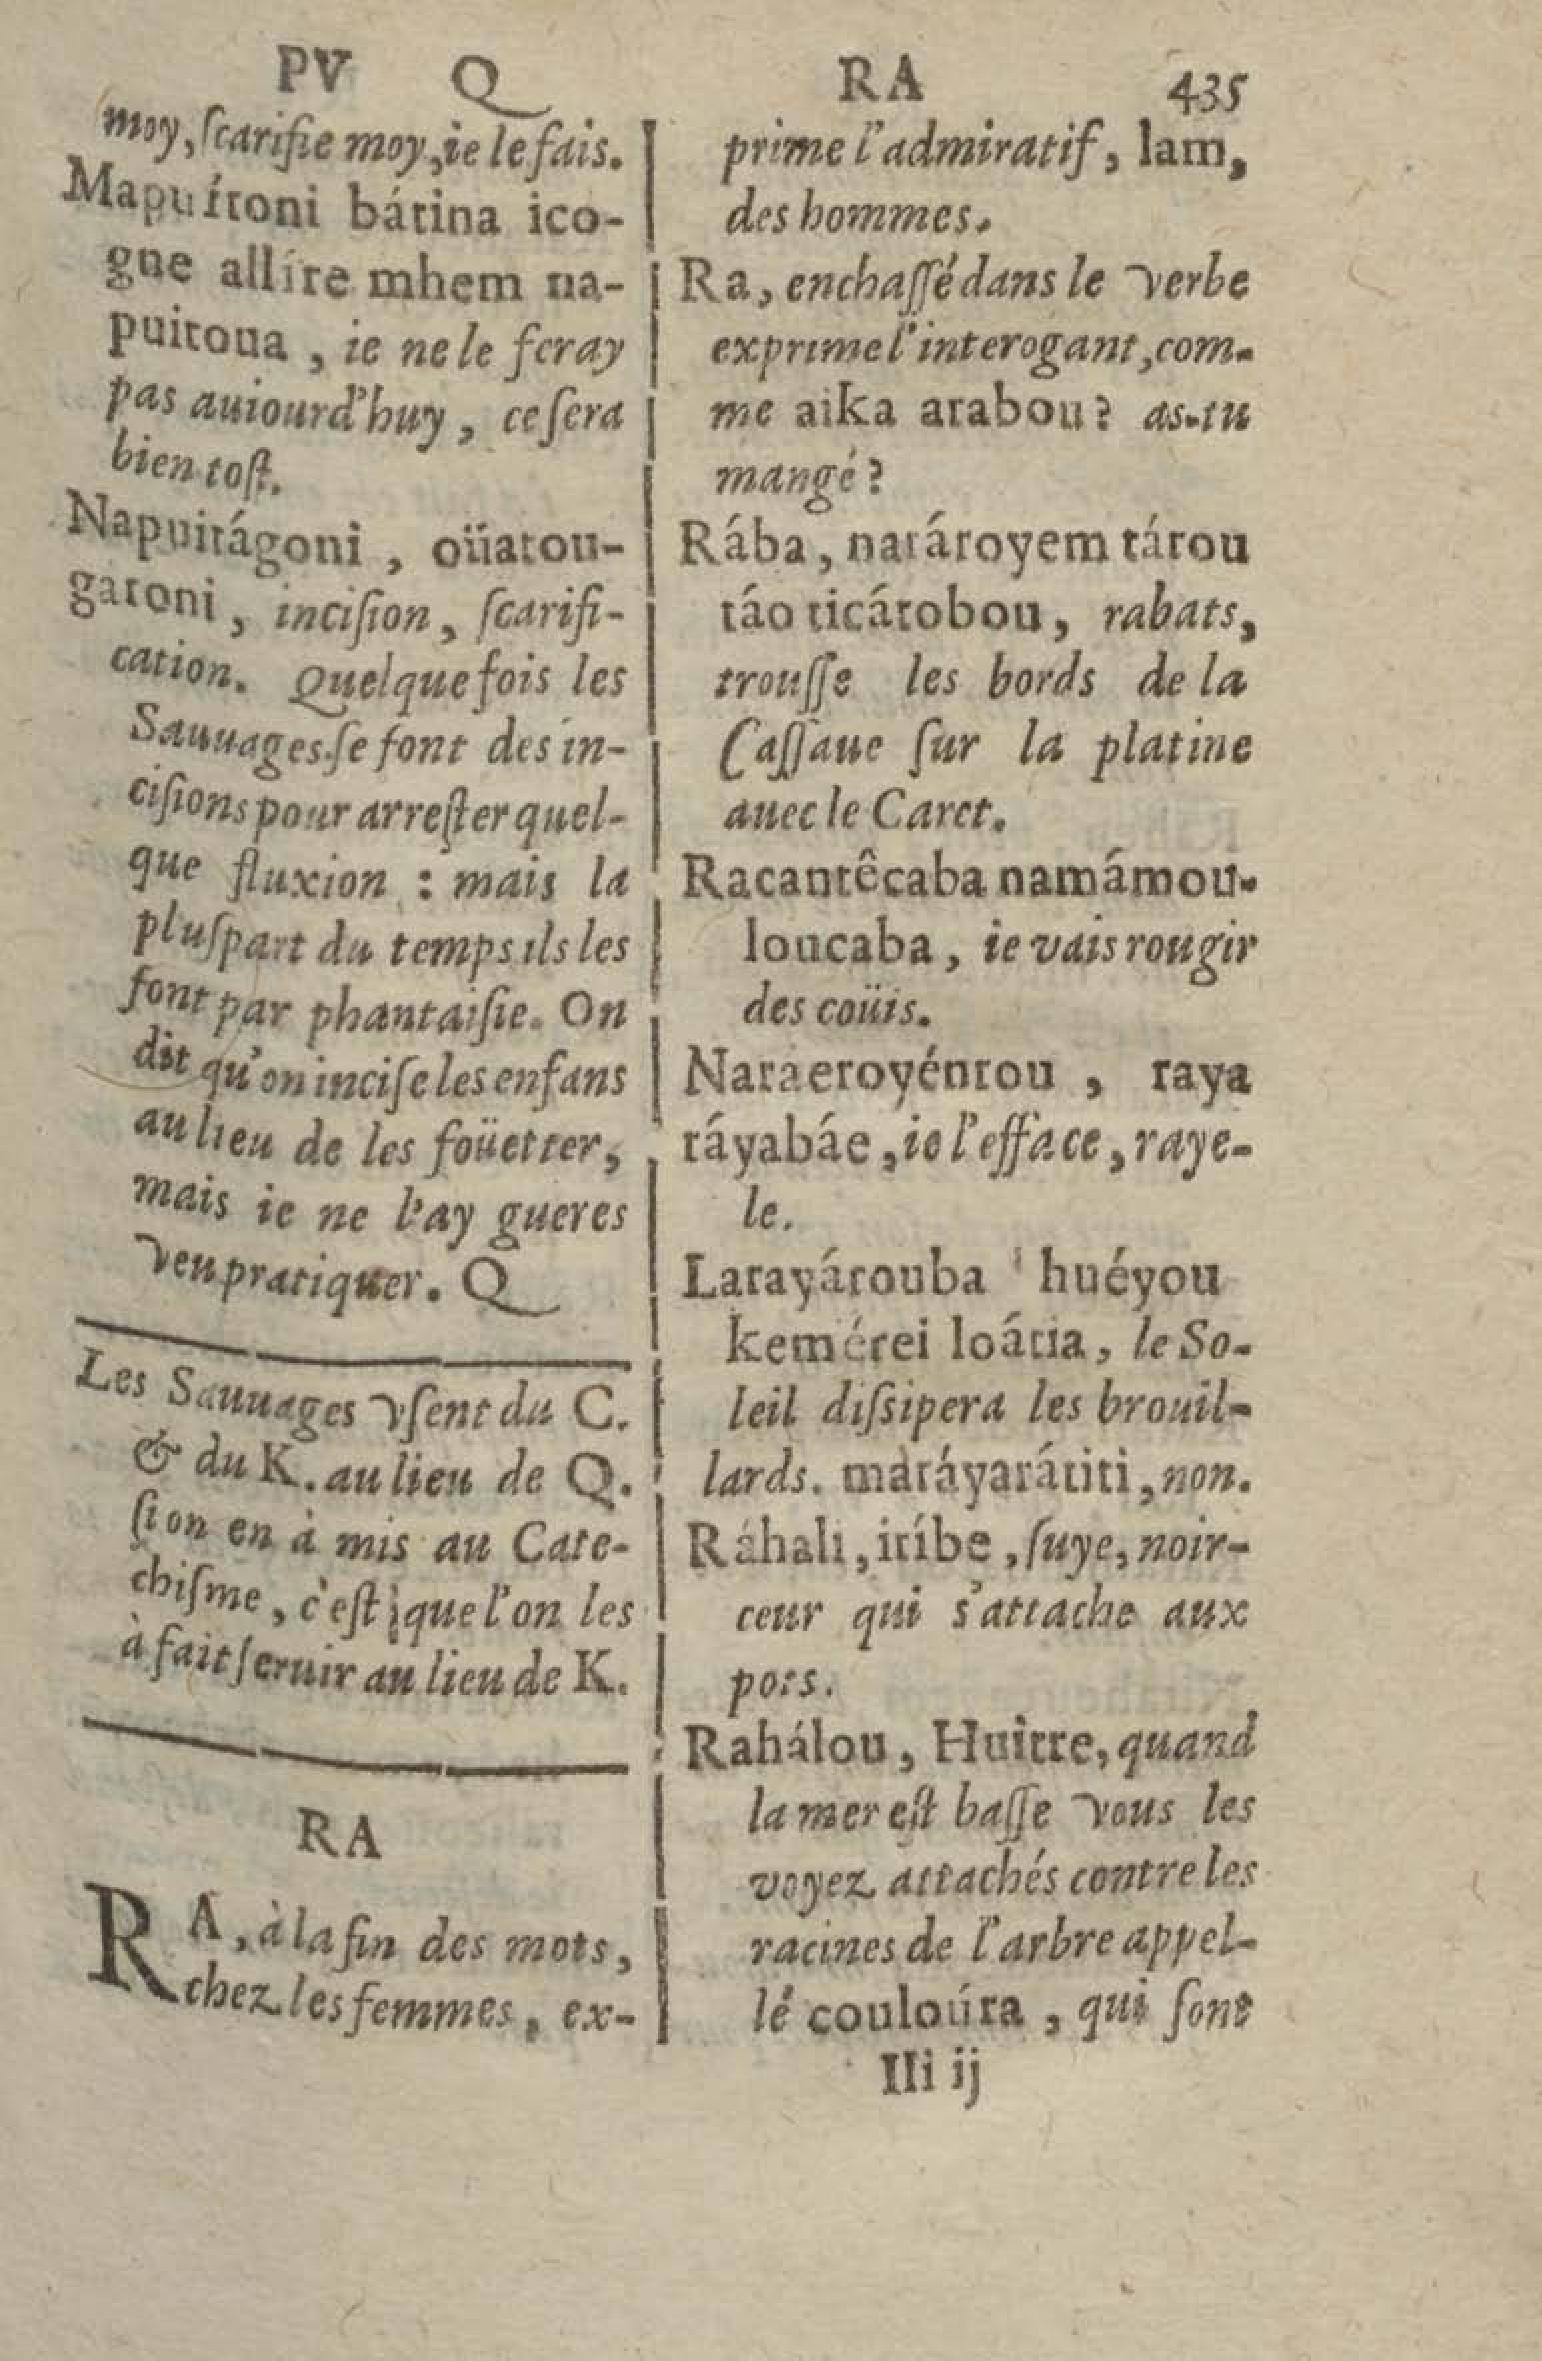 PV Q
moy, ſcarifie moy, ie le fais.
Mapuítoni bátina ico-
gne allíre mhem na-
puitoua, ie ne le feray
pas auiourd'huy, ce ſera
bien toſt.
Napuitágoni, oüatou-
gatoni, inciſion, ſcarifi-
cation. Quelque fois les
Sauuages ſe font des in-
ciſions pour arreſter quel-
que fluxion : mais la
pluſpart du temps ils les
font par phantaiſie. On
dit qu'on inciſe les enfans
au lieu de les foüetter,
mais ie ne l'ay gueres
veu pratiquer. Q
Les Sauuages vſent du C.
& du K. au lieu de Q.
ſi on en à mis au Cate-
chiſme, c'eſt que l'on les
à fait ſeruir au lieu de K.
RA
RA, à la fin des mots,
chez les femmes, ex-
RA 435
prime l'admiratif, lam,
des hommes.
Ra, enchaſſé dans le verbe
exprime l'interogant, com-
me aika arabou? as-tu
mangé?
Rába, natároyem tárou
táo ticátobou, rabats,
trouſſe les bords de la
Caſſaue ſur la platine
auec le Caret.
Racantêcaba namámou-
loucaba, ie vais rougir
des coüis.
Naraeroyéntou, raya
ráyabáe, ie l'efface, raye-
le.
Larayárouba huéyou
kemérei loátia, le So-
leil diſsipera les brouil-
lards. maráyarátiti, non.
Ráhali, iríbe, ſuye, noir-
ceur qui s'attache aux
pots.
Rahálou, Huitre, quand
la mer eſt baſſe vous les
voyez attachés contre les
racines de l'arbre appel-
lé couloúra, qui ſont
IIi ij